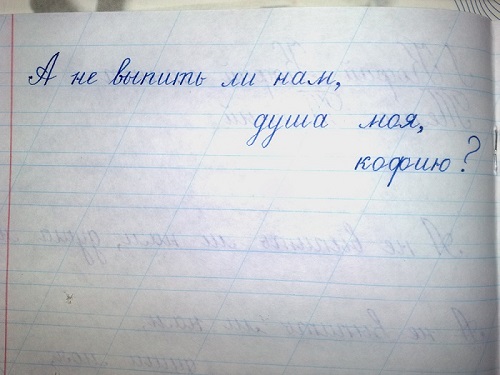 А не выпить ли нам,
душа моя,
кофию?